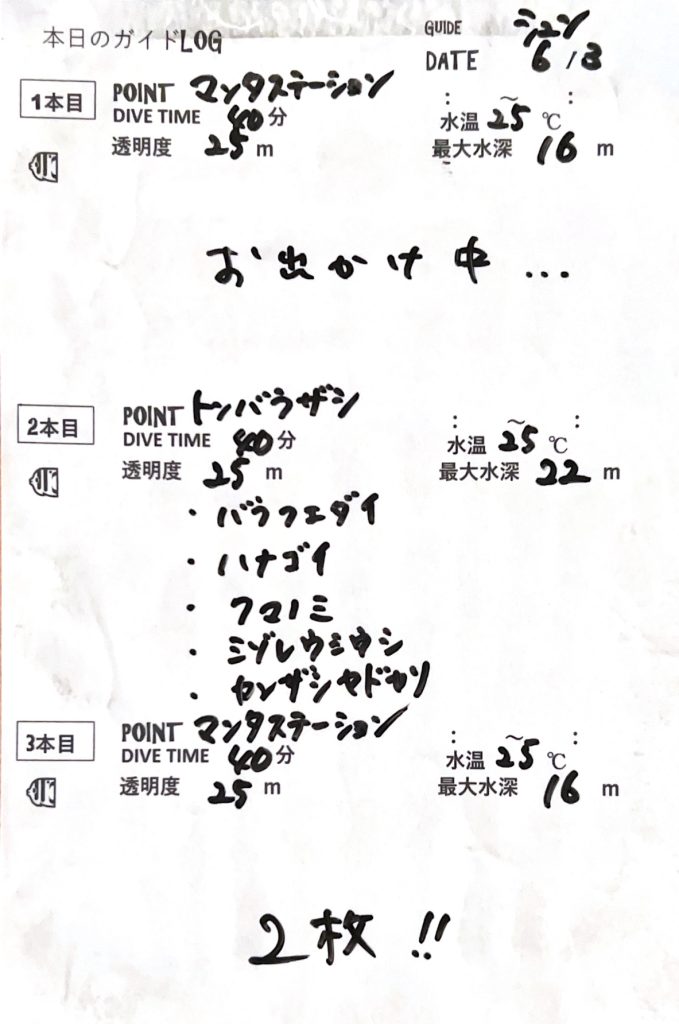 本日のガイドLOG
GUIDE ジュン
DATE 6/3
1本目
POINT マンタステーション
DIVE TIME 40分
: ～ :
水温 25 ℃
透明度 25 m
最大水深 16 m
お出かけ中...
2本目
POINT トンバラザシ
DIVE TIME 40分
: ～ :
水温 25 ℃
透明度 25 m
最大水深 22 m
・バラフエダイ
・ハナゴイ
・クマノミ
・ミゾレウミウシ
・カンザシヤドカリ
3本目
POINT マンタステーション
DIVE TIME 40分
: ～ :
水温 25 ℃
透明度 25 m
最大水深 16 m
2枚!!